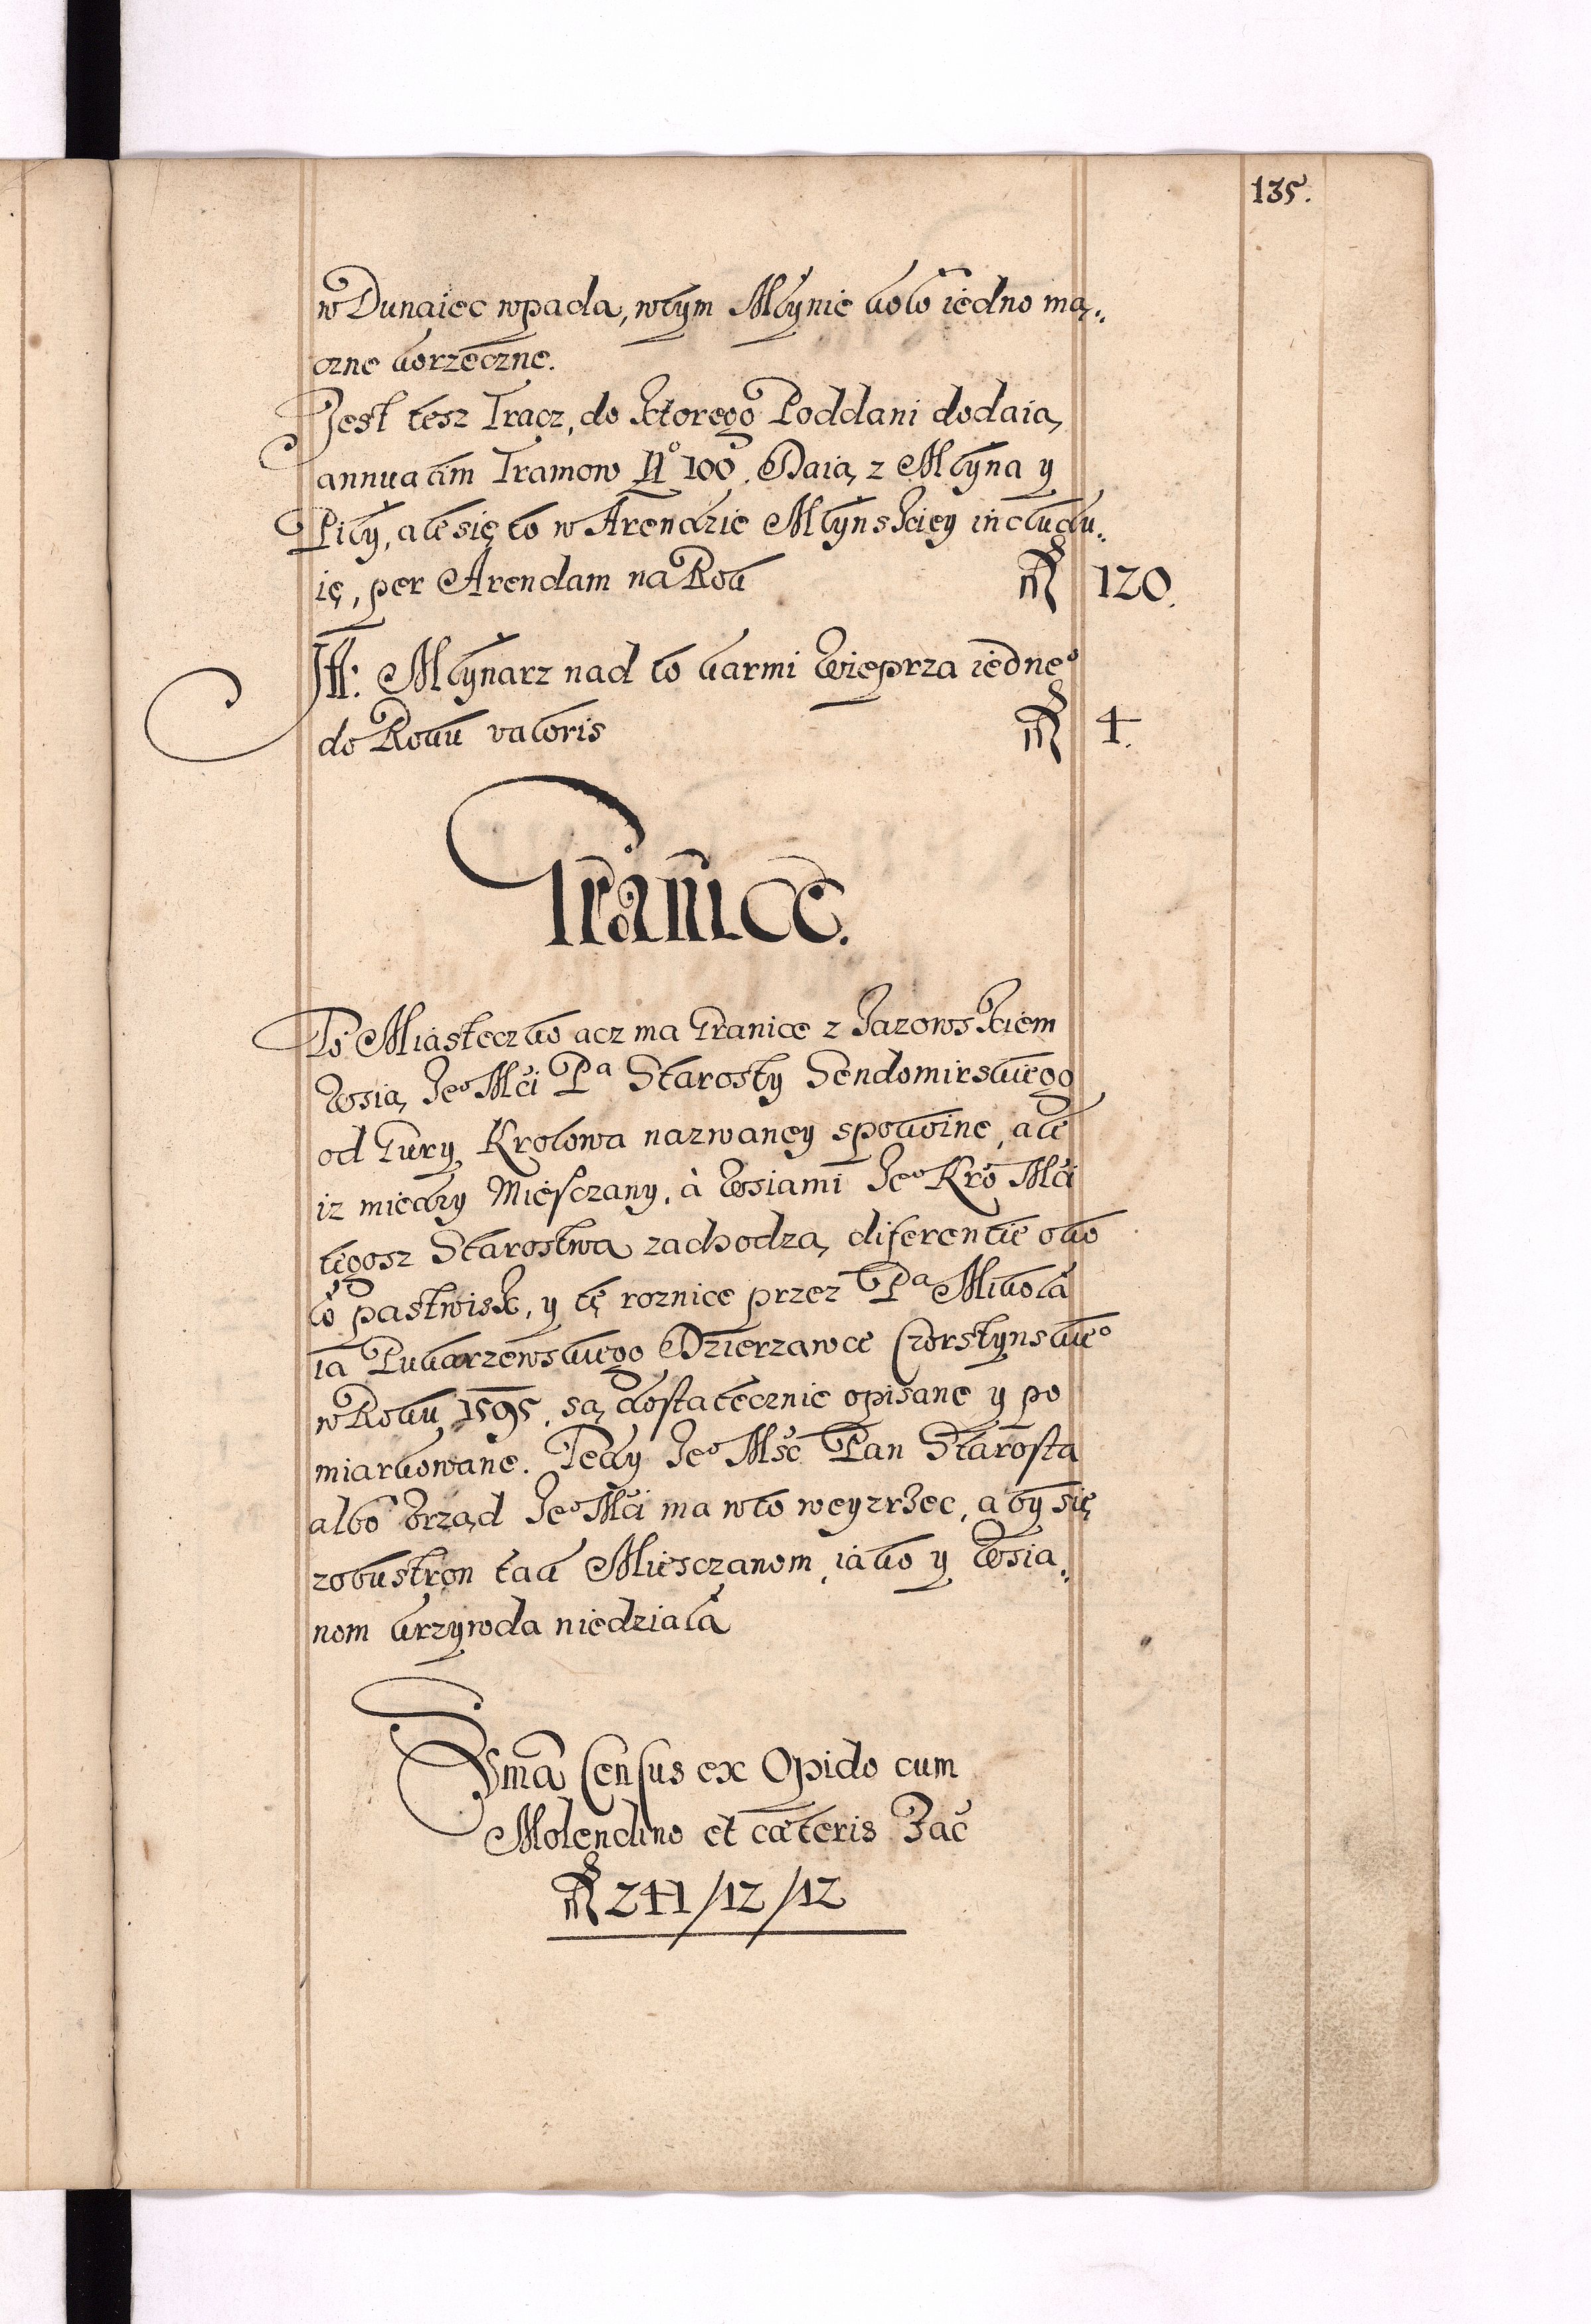 135.
w Dunaiec wpada, w tym Młynie koło iedno mą:
czne korzeczne.
Jest tesz Tracz, do ktorego Poddani dodaią
annuatim Tramow No 100. Daią z Młyna y
Piły, ale się to w Arendzie Młynskiey includu:
ię, per Arendam na Rok fl 120.
It: Młynarz nad to karmi Wieprza iedneo
do Roku valoris fl 4.
Granice.
To Miasteczko acz ma Granice z Jazowskiem
Wsią Jeo Mći Pa Starosty Sendomirskiego
od Gury Krolowa nazwaney spokoine, ale
iz miedzy Miesczany, à Wsiami Jeo Kro Mći
tegosz Starostwa zachodzą diferentie oko
ło pastwisk, y tę roznice przez Pa Mikoła
ia Pukarzewskiego Dzierzawce Czorstynskieo
w Roku 1595. są dostatecznie opisane y po
miarkowane. Tedy Jeo Msć Pan Starosta
albo Vrząd Jeo Mći ma w to weyzrzec, aby się
z obu stron tak Miesczanom, iako y Wsia:
nom krzywda niedziała
Suma Census ex Opido cum
Molendino et cæteris Zac
fl 241/12/12